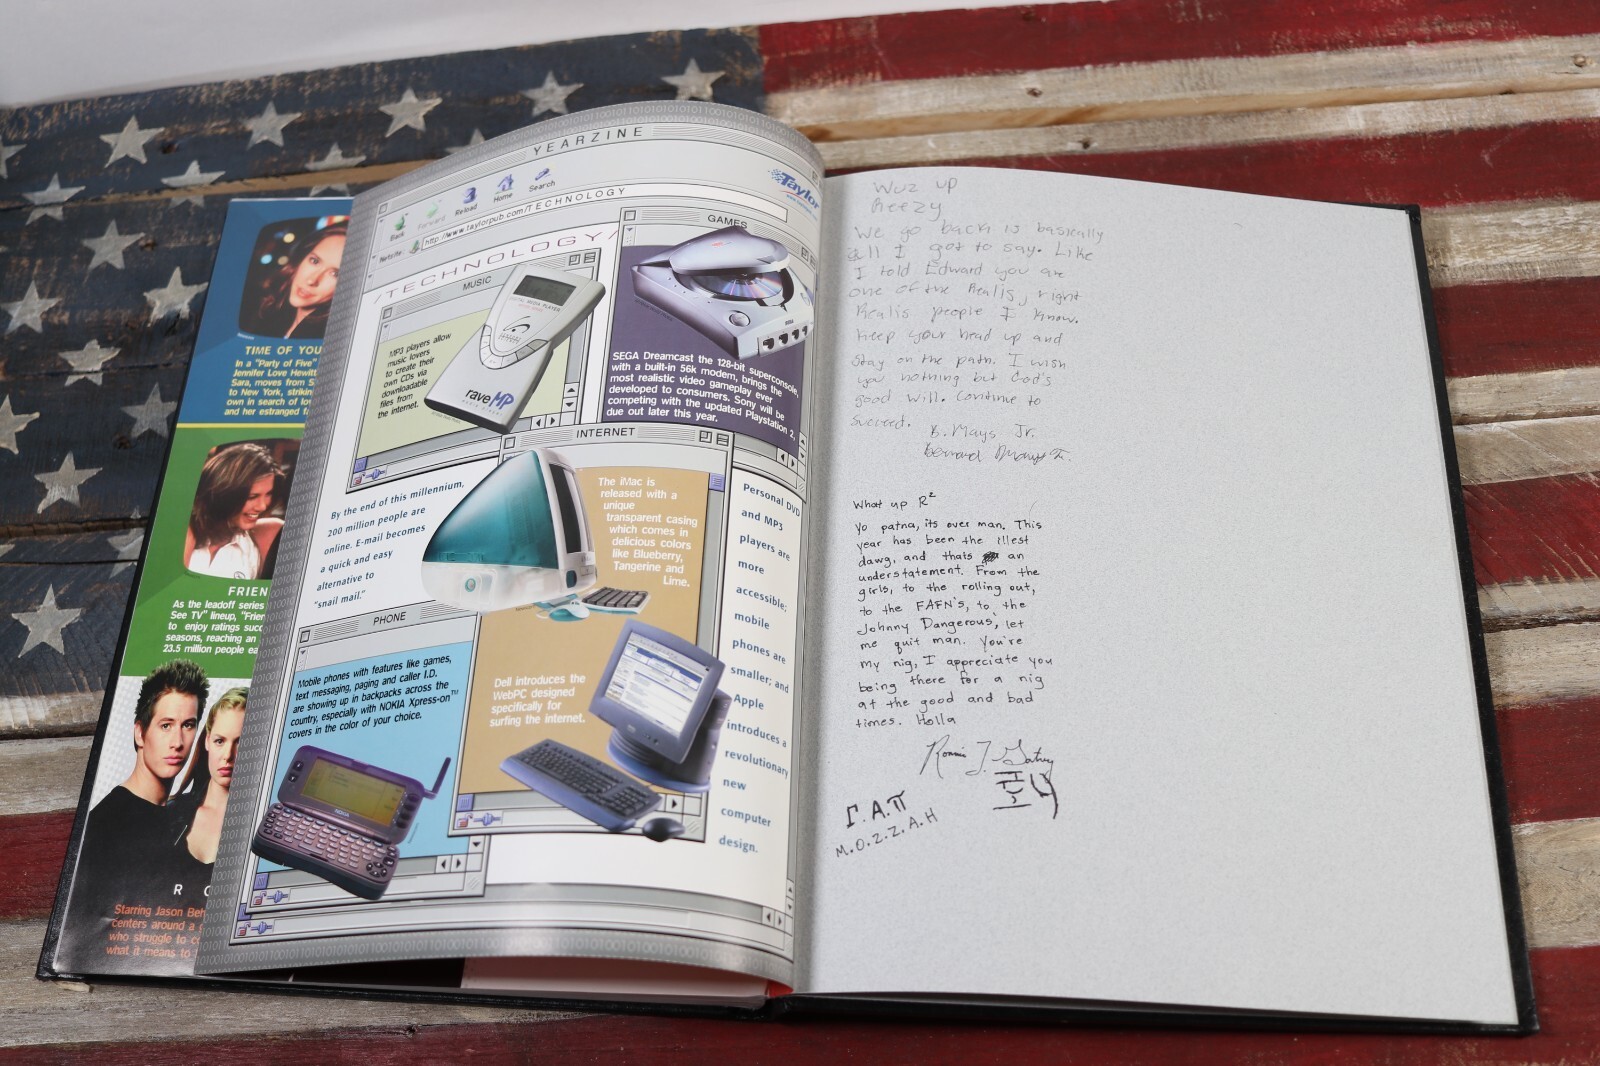 TIME OF YOU
In a "Party of Five"
Jennifer Love Hewitt
Sara, moves from S
to New York, striking
own in search of
and her estranged
FRIEN
As the leadoff series
See TV" lineup, "Frien
to enjoy ratings succ
seasons, reaching an
23.5 million people ea
R O
Starring Jason Beh
centers around a
who struggle to co
what it means to
YEARZINE
Back
Forward
Reload
Home
Search
Taylor
Netsite:
http://www.taylorpub.com/TECHNOLOGY
/TECHNOLOGY/
MUSIC
MP3 players allow
music lovers
to create their
own CDs via
downloadable
files from
the internet.
DIGITAL MEDIA PLAYER
raveMP
GAMES
SEGA Dreamcast the 128-bit superconsole,
with a built-in 56k modem, brings the
most realistic video gameplay ever
developed to consumers. Sony will be
competing with the updated Playstation 2,
due out later this year.
INTERNET
By the end of this millennium,
200 million people are
online. E-mail becomes
a quick and easy
alternative to
"snail mail."
The iMac is
released with a
unique
transparent casing
which comes in
delicious colors
like Blueberry,
Tangerine and
Lime.
Dell introduces the
WebPC designed
specifically for
surfing the internet.
Personal DVD
and MP3
players are
more
accessible;
mobile
phones are
smaller; and
Apple
introduces a
revolutionary
new
computer
design.
PHONE
Mobile phones with features like games,
text messaging, paging and caller I.D.
are showing up in backpacks across the
country, especially with NOKIA Xpress-on™
covers in the color of your choice.
NOKIA
Wuz up
Reezy
We go back is basically
all I got to say. Like
I told Edward you are
one of the Realis, right
Realis people I know.
Keep your head up and
stay on the path. I wish
you nothing but God's
good will. Continue to
succeed.
B. Mays Jr.
Bernard Mays Jr.
What up R²
Yo patna, its over man. This
year has been the illest
dawg, and thats an
understatement. From the
girls, to the rolling out,
to the FAFN's, to the
Johnny Dangerous, let
me quit man. You're
my nig, I appreciate you
being there for a nig
at the good and bad
times. Holla
Ronnie J.
Γ.Α.Π
M.O.Z.Z.A.H